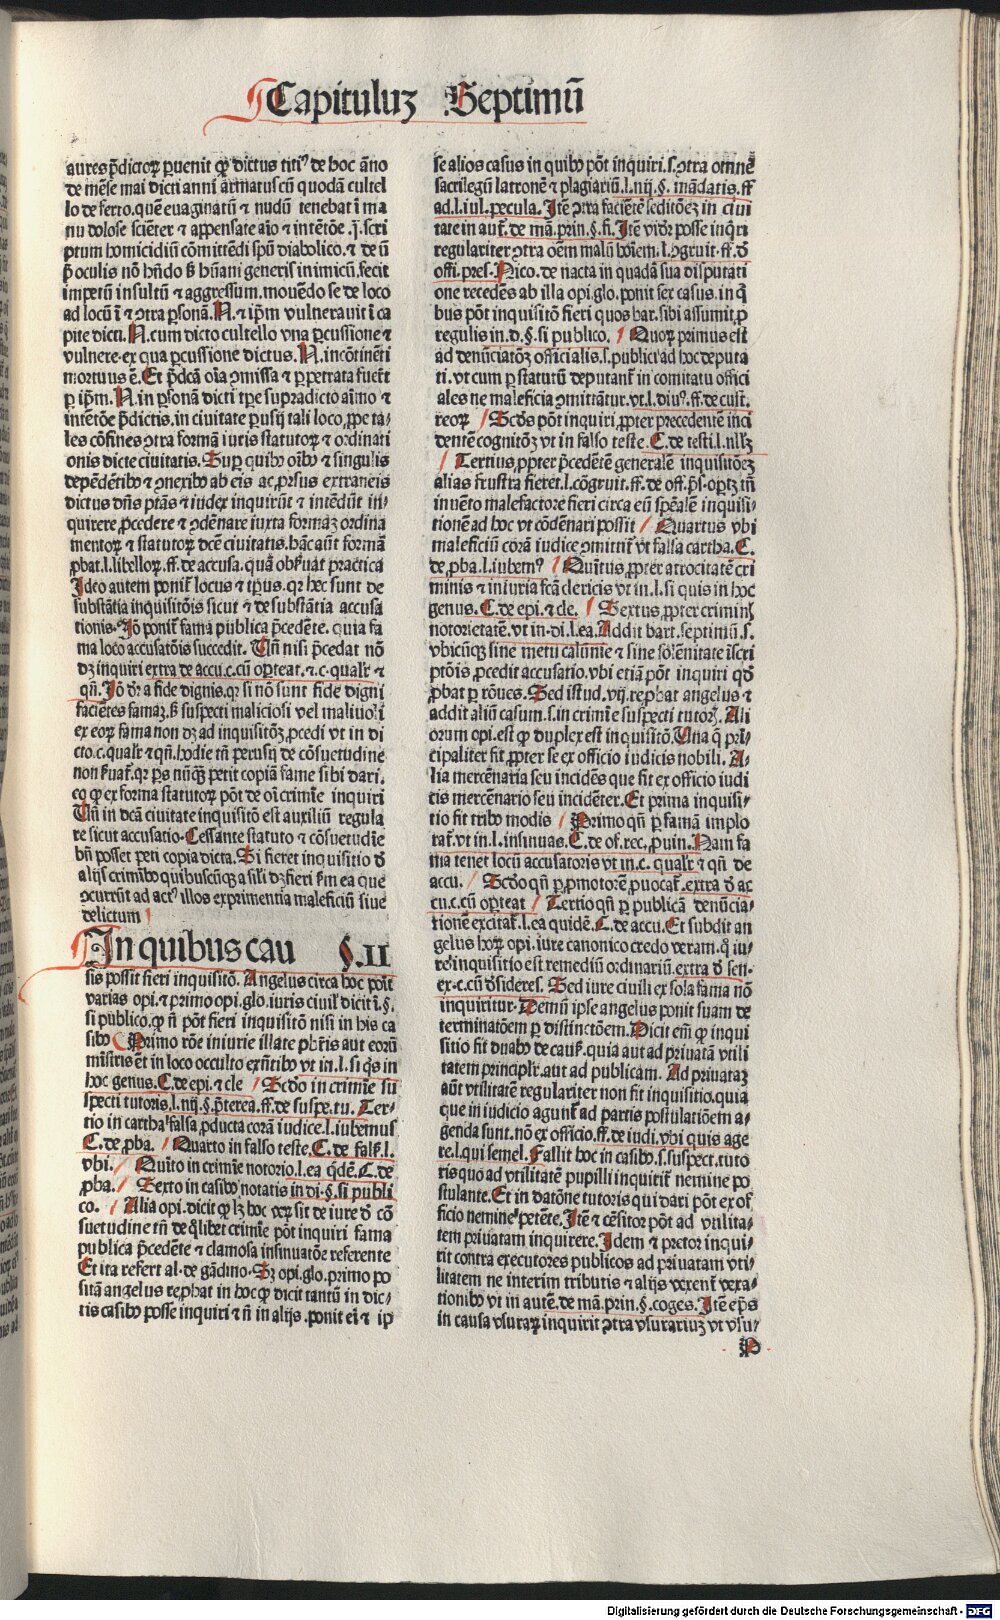 Capituluꝫ Septimū
aures p̄dictoꝝ ꝑuenit ꝙ dictus titiꝰ de hoc āno
de mēse mai dicti anni armatus cū quodā cultel
lo de ferro. quē euaginatū ⁊ nudū tenebat ī ma
nu dolose sciēter ⁊ appensate aīo ⁊ intētōe .ꝗ. scri
ptum homicidiū cōmittēdi spū diabolico. ⁊ deū
p̄ oculis nō hn̄do sꝫ hūani generis inimicū. fecit
impetū insultū ⁊ aggressum. mouēdo se de loco
ad locū ī ⁊ ꝯtra ꝑsonā. N. ⁊ ip̄m vulnerauit ī ca
pite dicti. N. cum dicto cultello vna ꝑcussione ⁊
vulnere. ex qua ꝑcussione dictus. N. incōtinēti
mortuus ē. Et p̄dcā oīa ꝯmissa ⁊ ꝑpetrata fuert̄
ꝑ ip̄m. N. in ꝑsonā dicti tpe supradicto aīmo ⁊
intētōe p̄dictis. in ciuitate ꝑusij tali loco, ꝓpe ta⸗
les cōfines ꝯtra formā iuris statutoꝝ ⁊ ordinati
onis dicte ciuitatis. Suꝑ quibꝰ oībꝰ ⁊ singulis
depēdētibꝰ ⁊ ꝯnexibꝰ ab eis ac, ꝓrsus extraneis
dictus dn̄s ptās ⁊ iudex inquirūt ⁊ intēdūt in⸗
quirere, ꝓcedere ⁊ ꝯdēnare iuxta formaꝫ ordina
mentoꝝ ⁊ statutoꝝ dcē ciuitatis. hāc aūt formā
ꝓbat. l. libelloꝝ. ff. de accusa. quā obẜuat practica
Ideo autem ponit̄ locus ⁊ tp̄us. qꝛ hec sunt de
substātia inquisitōis sicut ⁊ de substātia accusa
tionis. Jō ponit̄ fama publica p̄cedēte. quia fa
ma loco accusatōis succedit. Vn̄ nisi p̄cedat nō
dꝫ inquiri extra de accu. c. cū oꝑteat. ⁊. c. qualr̄ ⁊
qn̄. Jō dr̄ a fide dignis. qꝛ si nō sunt fide digni
faciētes famaꝫ. sꝫ suspecti maliciosi vel maliuoli
ex eoꝝ fama non dꝫ ad inquisitōꝫ ꝓcedi vt in di
cto. c. qualr̄ ⁊ qn̄. hodie tn̄ ꝑerusij de cōsuetudine
non ẜuat̄. qꝛ ꝑs nūqꝫ petit copiā fame sibi dari.
eo ꝙ ex forma statutoꝝ pōt de oī crimīe inquiri
Vn̄ in dcā ciuitate inquisitō est auxiliū regula
re sicut accusatio. Cessante statuto ⁊ cōsuetudīe
bn̄ posset peti copia dicta. Si fieret inquisitio ꝺ̄
alijs crimībꝰ quibuscūqꝫ a sili dꝫ fieri ẜm ea que
ꝯcurrūt ad actꝰ illos exprimentia maleficiū siue
delictum
In quibus cau §. II
sis possit fieri inquisitō. Angelus circa hoc poīt
varias opi. ⁊ primo opi. glo. iuris ciuil̄ dicit ī. §.
si publico. ꝙ n̄ pōt fieri inquisitō nisi in his ca
sibꝰ Primo rōe iniurie illate pb̄ris aut eorū
mīstris ēt in loco occulto exn̄tibꝰ vt in. l. si qͥs in
hoc genus. C. de epi. ⁊ cle Scdo in crimīe su
specti tutoris. l. iiij. §. p̄terea. ff. de suspe. tu. Ter⸗
tio in cartha falsa, ꝓducta corā iudice. l. iubemus
C. de ꝓba. Quarto in falso teste. C. de falẜ. l.
vbi. Quīto in crimīe notorio. l. ea qͥdē. C. de
ꝓba. Sexto in casibꝰ notatis in di. §. si publi
co. Alia opi. dicit ꝙ lꝫ hoc veꝝ sit de iure ꝺ̄ cō
suetudine tn̄ de qͦlibet crimīe pōt inquiri fama
publica p̄cedēte ⁊ clamosa insinuatōe referente
Et ita refert al. de gādino. Sꝫ opi. glo. primo po
sitā angelus reꝓbat in hoc ꝙ dicit tantū in dic⸗
tis casibꝰ posse inquiri ⁊ n̄ in alijs. ponit eī ⁊ ip
se alios casus in quibꝰ pōt inquiri. s. ꝯtra omnē
sacrilegū latronē ⁊ plagiariū. l. iiij. §. mādatis. ff
ad. l. iul. pecula. Itē ꝯtra faciētē seditōeꝫ in ciui
tate in aut̄. de mā. prin. §. fi. Itē vidr̄ posse inqͥri
regulariter ꝯtra oēm malū hoīem. l. ꝯgruit. ff. ꝺ̄
offi. pres. Nico. de nacta in quadā sua disputati
one recedēs ab illa opi. glo. ponit sex casus. in qͥ
bus pōt inquisitō fieri quos bar. sibi assumit, ꝓ
regulis in. d. §. si publico. Quoꝝ primus est
ad denūciatōꝫ officialis. s. publici ad hoc deputa
ti. vt cum ꝑ statutū deputant̄ in comitatu offici
ales ne maleficia ꝯmittātur. vt. l. diuꝰ. ff. de cust.
reoꝝ Scdōs pōt inquiri, ꝓpter precedentē inci
dentē cognitōꝫ vt in falso teste. C. de testi. l. nllꝫ
Tertius, ꝓpter p̄cedētē generalē inquisitōeꝫ
alias frustra fieret. l. cōgruit. ff. de off. p̄s. oꝑtꝫ tn̄
inuēto malefactore fieri circa eū spēalē inquisi⸗
tionē ad hoc vt cōdēnari possit Quartus vbi
maleficiū corā iudice ꝯmittit̄ vt falsa cartha. C.
de, ꝓba. l. iubemꝰ Quītus, ꝓpter atrocitatē cri
minis ⁊ iniuria fcā clericis vt in. l. si quis in hoc
genus. C. de epi. ⁊ cle. Sextus, ꝓpter criminꝫ
notorietatē. vt in. di. l. ea. Addit bart. septimū. s.
vbicūqꝫ sine metu calūnie ⁊ sine solēnitate īscri
ptōis, ꝓcedit accusatio. vbi etiā pōt inquiri qd̄
ꝓbat ꝑ rōues. Sed istud. vij. reꝓbat angelus ⁊
addit aliū casum. s. in crimīe suspecti tutorꝫ. Ali
orum opi. est ꝙ duplex est inquisitō. Una q̄ prī⸗
cipaliter fit, ꝓpter se ex officio iudicis nobili. A⸗
lia mercēnaria seu incidēs que fit ex officio iudi
cis mercēnario seu incidēter. Et prima inquisi⸗
tio fit tribꝰ modis Primo qn̄ ꝑ famā implo
rat̄. vt in. l. insinuas. C. de of. rec. ꝓuin. Nam fa
ma tenet locū accusatoris vt in. c. qualr̄ ⁊ qn̄ de
accu. Scdo qn̄ ꝑ ꝓmotorē ꝓuocat̄. extra ꝺ̄ ac
cu. c. cū oꝑteat Tertio qn̄ ꝑ publicā denūcia⸗
tionē excitat̄. l. ea quidē. C. de accu. Et subdit an
gelus hoꝝ opi. iure canonico credo veram. qꝛ iu⸗
re inquisitio est remediū ordinariū. extra ꝺ̄ sen.
ex. c. cū ꝺ̄sideres. Sed iure ciuili ex sola fama nō
inquiritur. Demū ipse angelus ponit suam de
terminatōem ꝑ distinctōem. Dicit em̄ ꝙ inqui
sitio fit duabꝰ de cauẜ. quia aut ad priuatā vtili
tatem principlr̄. aut ad publicam. Ad priuataꝫ
aūt vtilitatē regulariter non fit inquisitio. quia
que in iudicio agunt̄ ad partis postulatiōem a⸗
genda sunt. nō ex officio. ff. de iudi. vbi quis age
re. l. qui semel. Fallit hoc in casibꝰ. s. suspect. tuto
ris quo ad vtilitatē pupilli inquirit̄ nemine po
stulante. Et in datōne tutoris qui dari pōt ex of
ficio nemine petēte. Itē ⁊ cēsitor pōt ad vtilita⸗
tem priuatam inquirere. Idem ⁊ pretor inqui⸗
rit contra executores publicos ad priuatam vti⸗
litatem ne interim tributis ⁊ alijs vexent̄ vexa⸗
tionibꝰ vt in autē. de mā. prin. §. coges. Itē ep̄s
in causa vsuraꝝ inquirit ꝯtra vsurariuꝫ vt vsu⸗
P
Digitalisierung gefördert durch die Deutsche Forschungsgemeinschaft - DFG